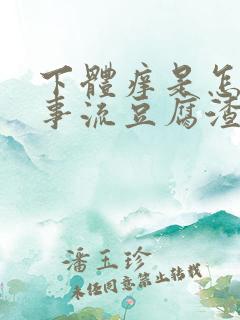 下體痒是怎
事流豆腐渣
潘玉珍
未经同意禁止转载